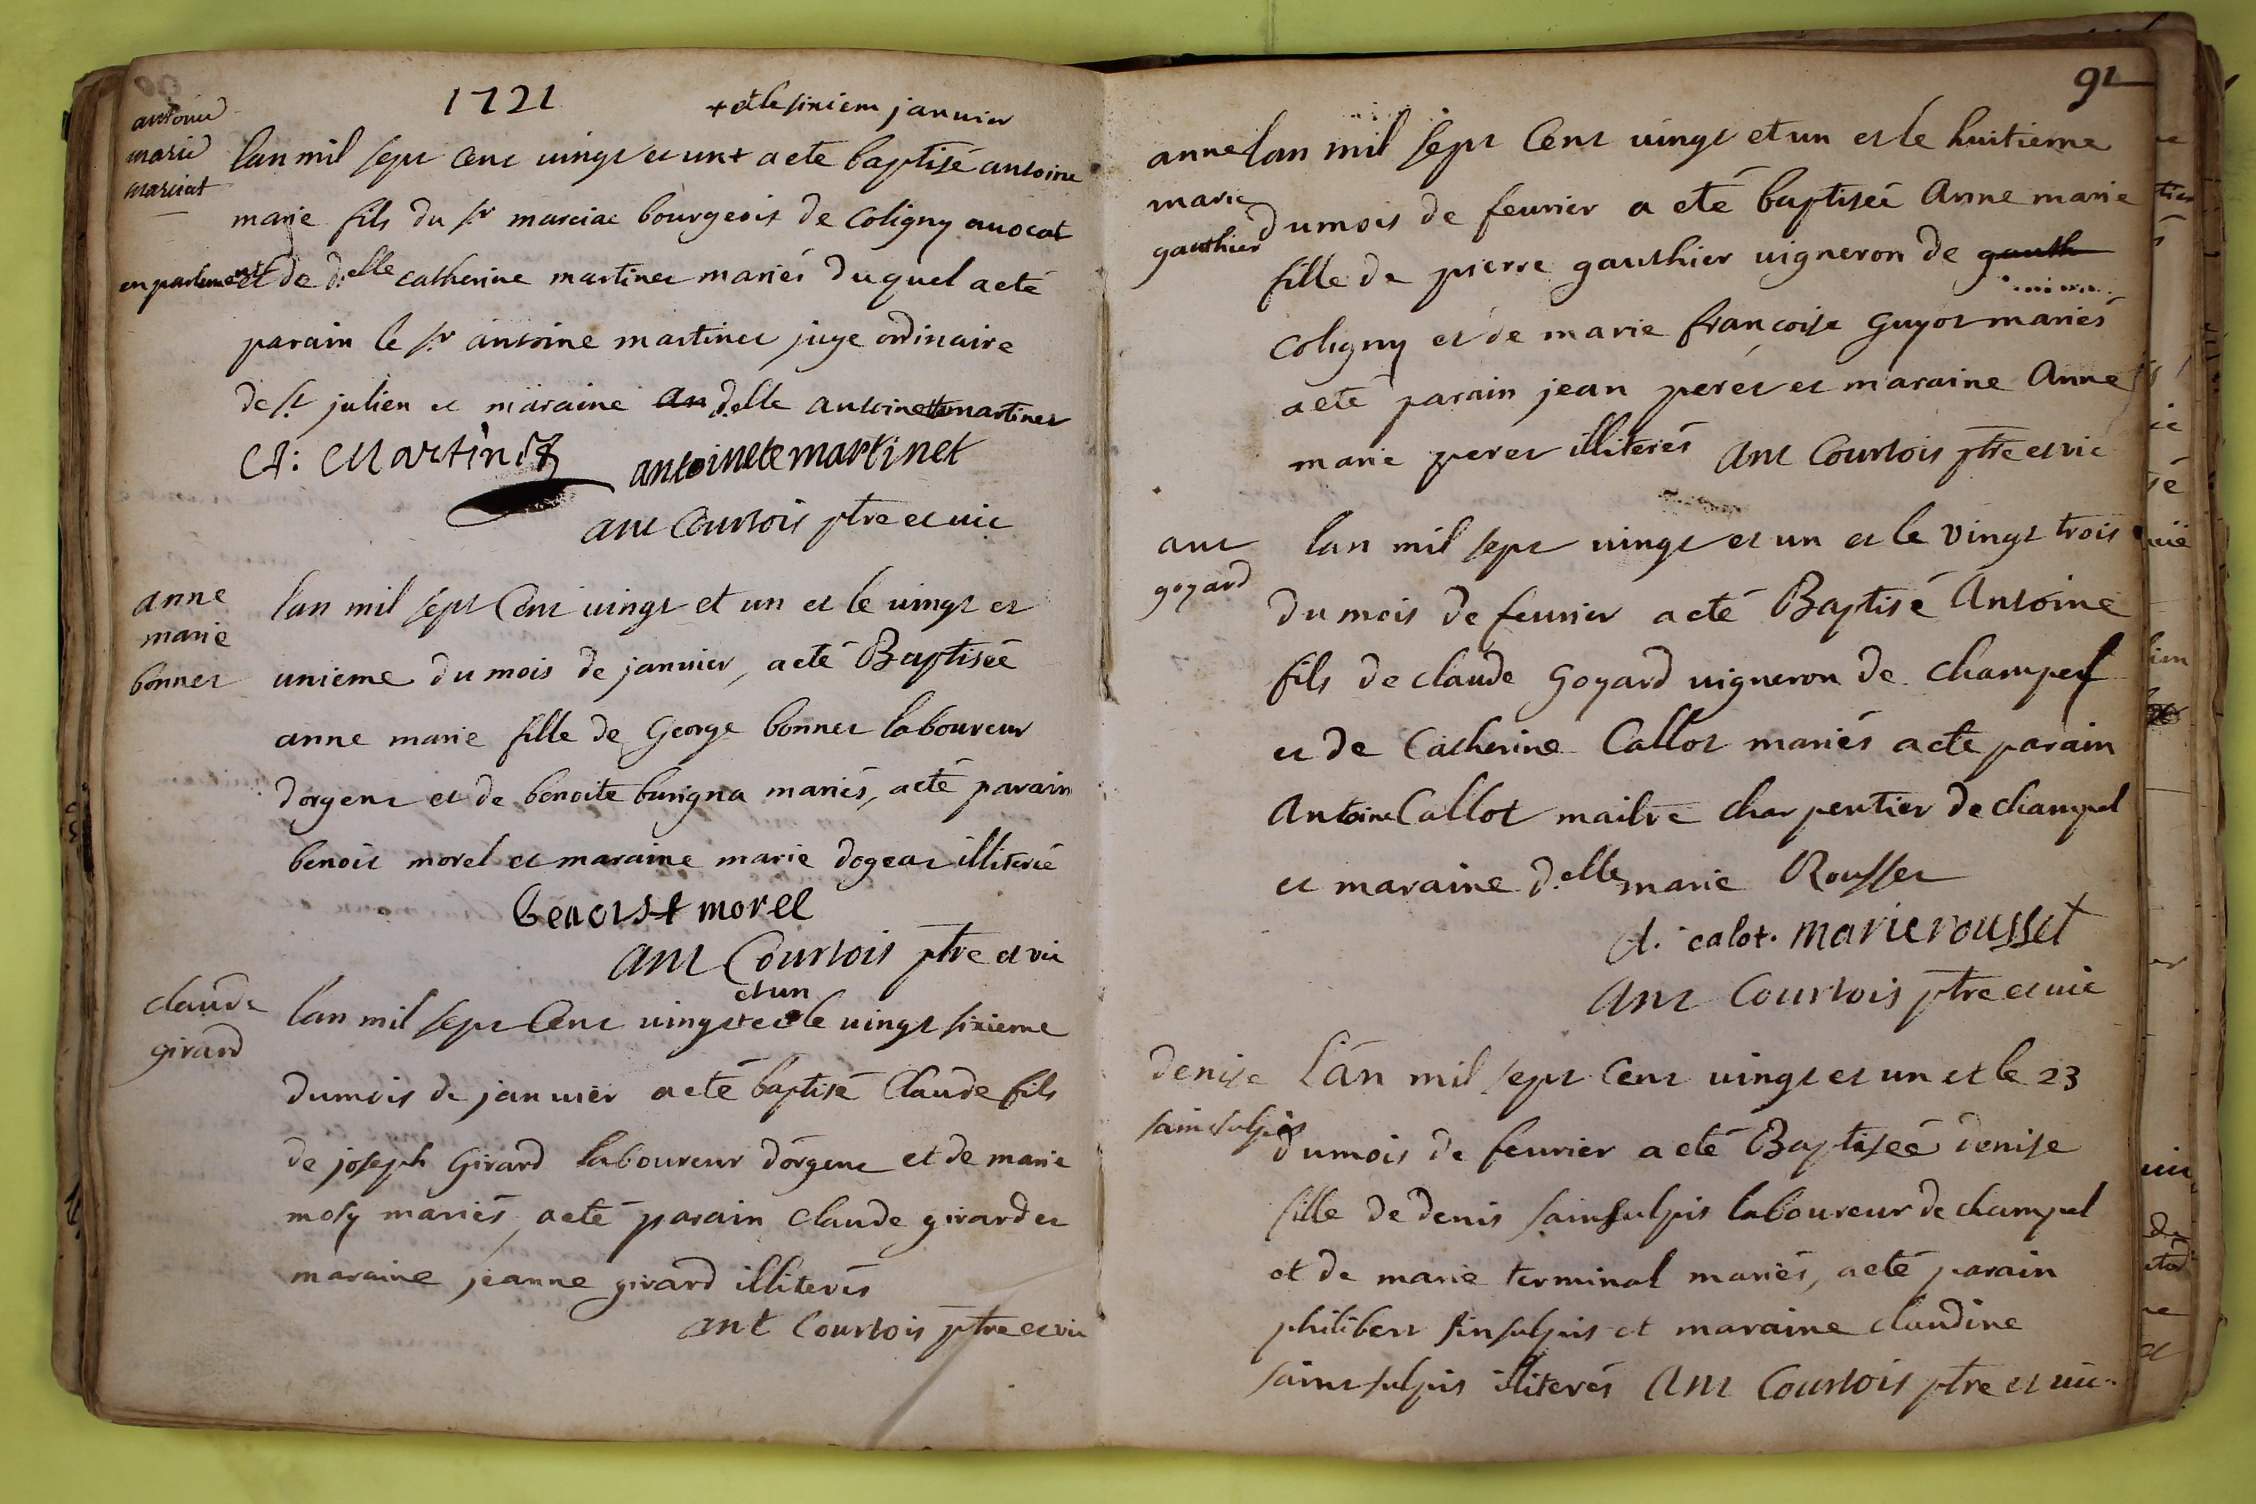 1721
+ et le sixiem janvier
antoine
marie
marciat
lan mil sept cent vingt et un + a eté baptisé antoine
marie fils du sr marciat bourgeois de Coligny avocat
en parlement et de d.elle catherine martinet mariés duquel a eté
parain le sr antoine martinet juge ordinaire
de st julien et maraine an d.elle antoinette martinet
A: Martinet antoinete martinet
ant Courtois ptre et vic
anne
marie
bonnet
lan mil sept Cent vingt et un et le vingt et
unieme du mois de janvier, a eté Baptiseé
anne marie fille de George bonnet laboureur
dorgent et de benoite burigna mariés, a eté parain
benoit morel et maraine marie dogeat illiterée
benoist morel
ant Courtois ptre et vic
claude
girard
et un
lan mil sept Cent vingt et le vingt sixieme
du mois de janvier a eté baptisé Claude fils
de joseph Girard laboureur dorgent et de marie
mosy mariés, a eté parain claude girard et
maraine jeanne girard illiterés
ant Courtois ptre et vic
91
anne
marie
gauthier
lan mil sept Cent vingt et un et le huitieme
du mois de feurier a eté baptiseé Anne marie
fille de pierre gauthier vigneron de gauth
Coligny et de marie françoise Guyot mariés
a eté parain jean peret et maraine Anne
marie peret illiterés Ant Courtois ptre et vic
ant
goyard
lan mil sept vingt et un et le vingt trois
du mois de feurier a eté Baptisé Antoine
fils de claude Goyard vigneron de champel
et de Catherine Callot mariés a eté parain
Antoine Callot maitre charpentier de champel
et maraine d.elle marie Rousset
A. calot. marie rousset
Ant Courtois ptre et vic
denise
sainsulpis
L'an mil sept Cent vingt et un et le 23
du mois de feurier a eté Baptiseé denise
fille de denis sainsulpis laboureur de champel
et de marie terminal mariés, a eté parain
philibert sinsulpis et maraine claudine
saintsulpis illiterés Ant Courtois ptre et vic